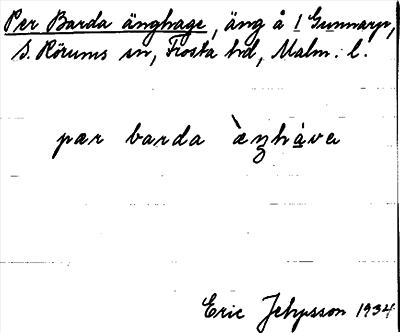 Per Barda änghage, äng å 1 Gunnarp,
S. Rörums sn, Frosta hd, Malm. l.
pær barda æ̀ŋháva
Eric Jepsson 1934